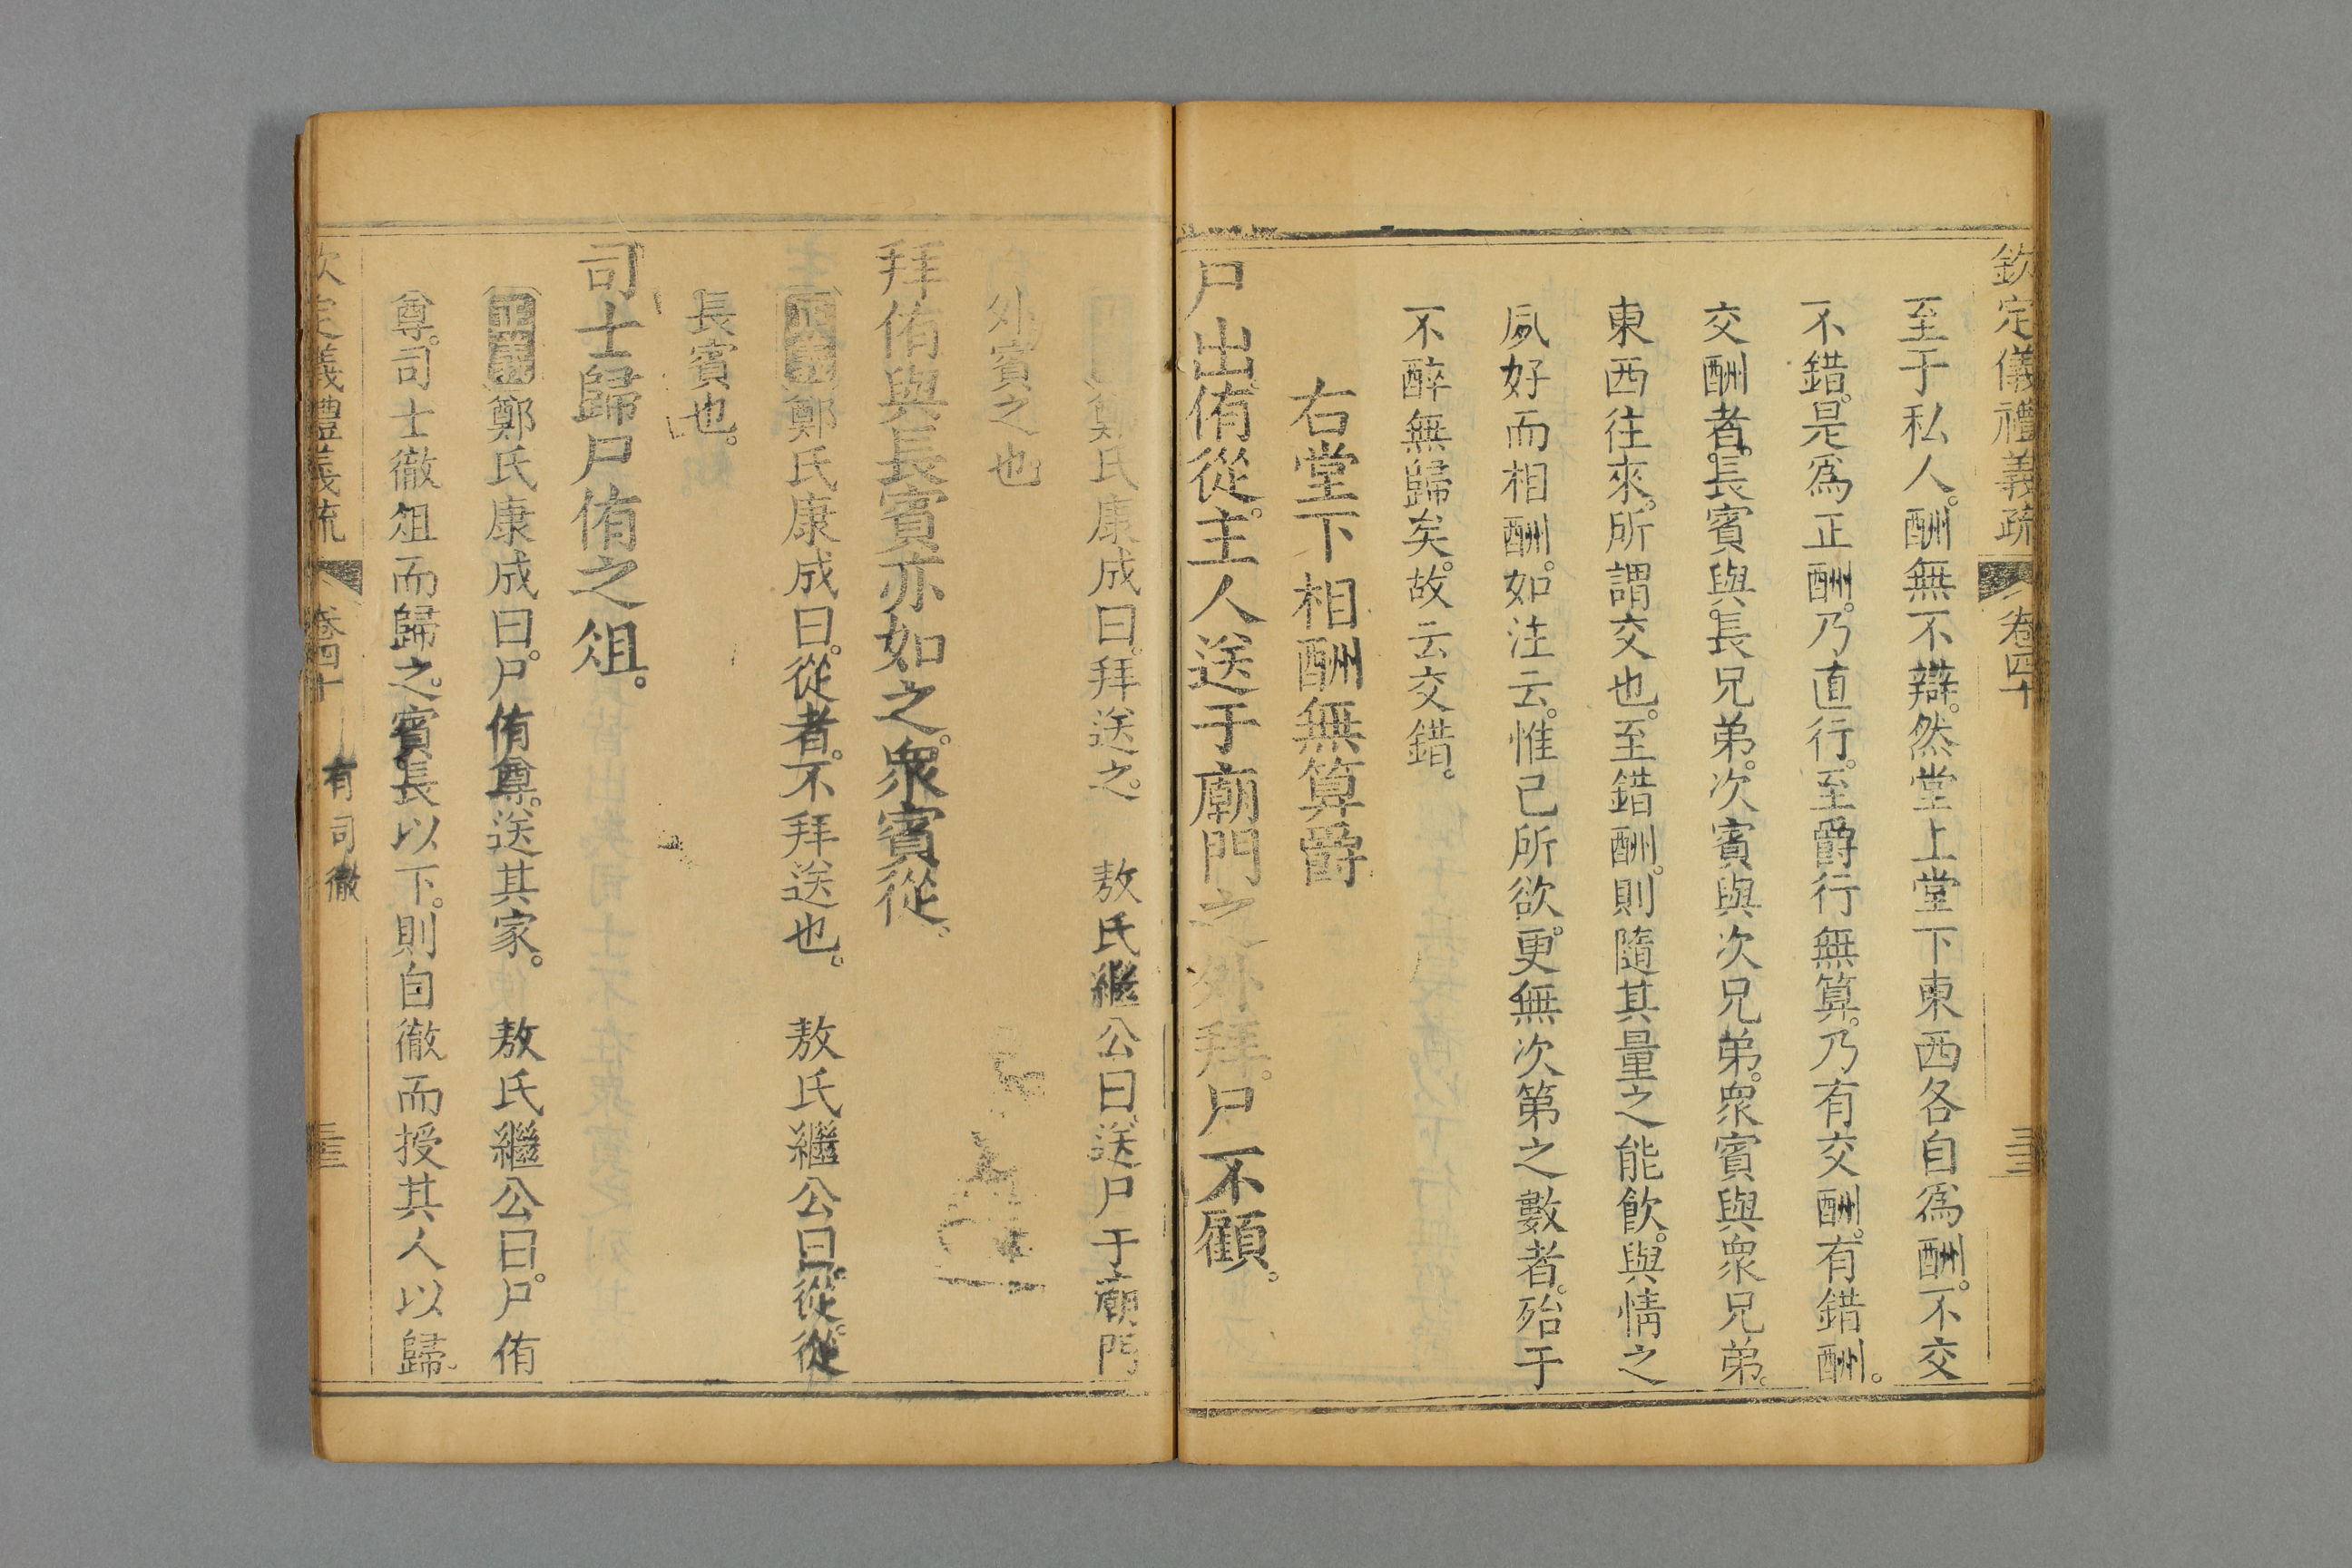 欽定儀禮義疏 卷四十
至于私人。酬無不辯。然堂上堂下東西各自爲酬。不交
不錯。是爲正酬。乃直行。至爵行無算。乃有交酬。有錯酬。
交酬者。長賓與長兄弟。次賓與次兄弟。衆賓與衆兄弟。
東西往來。所謂交也。至錯酬。則隨其量之能飲。與情之
夙好而相酬。如注云。惟己所欲。更無次第之數者。殆于
不醉無歸矣。故云交錯。
右堂下相酬無算爵
尸出侑從。主人送于廟門之外拜。尸不顧。
鄭氏康成曰。拜送之。 敖氏繼公曰。送尸于廟門
外賓之也
拜侑與長賓亦如之。衆賓從。
正義 鄭氏康成曰。從者。不拜送也。 敖氏繼公曰。從。從
長賓也。
司士歸尸侑之俎。
正義 鄭氏康成曰。尸侑尊。送其家。 敖氏繼公曰。尸侑
尊。司士徹俎而歸之。賓長以下。則自徹而授其人以歸。
欽定儀禮義疏 卷四十 有司徹